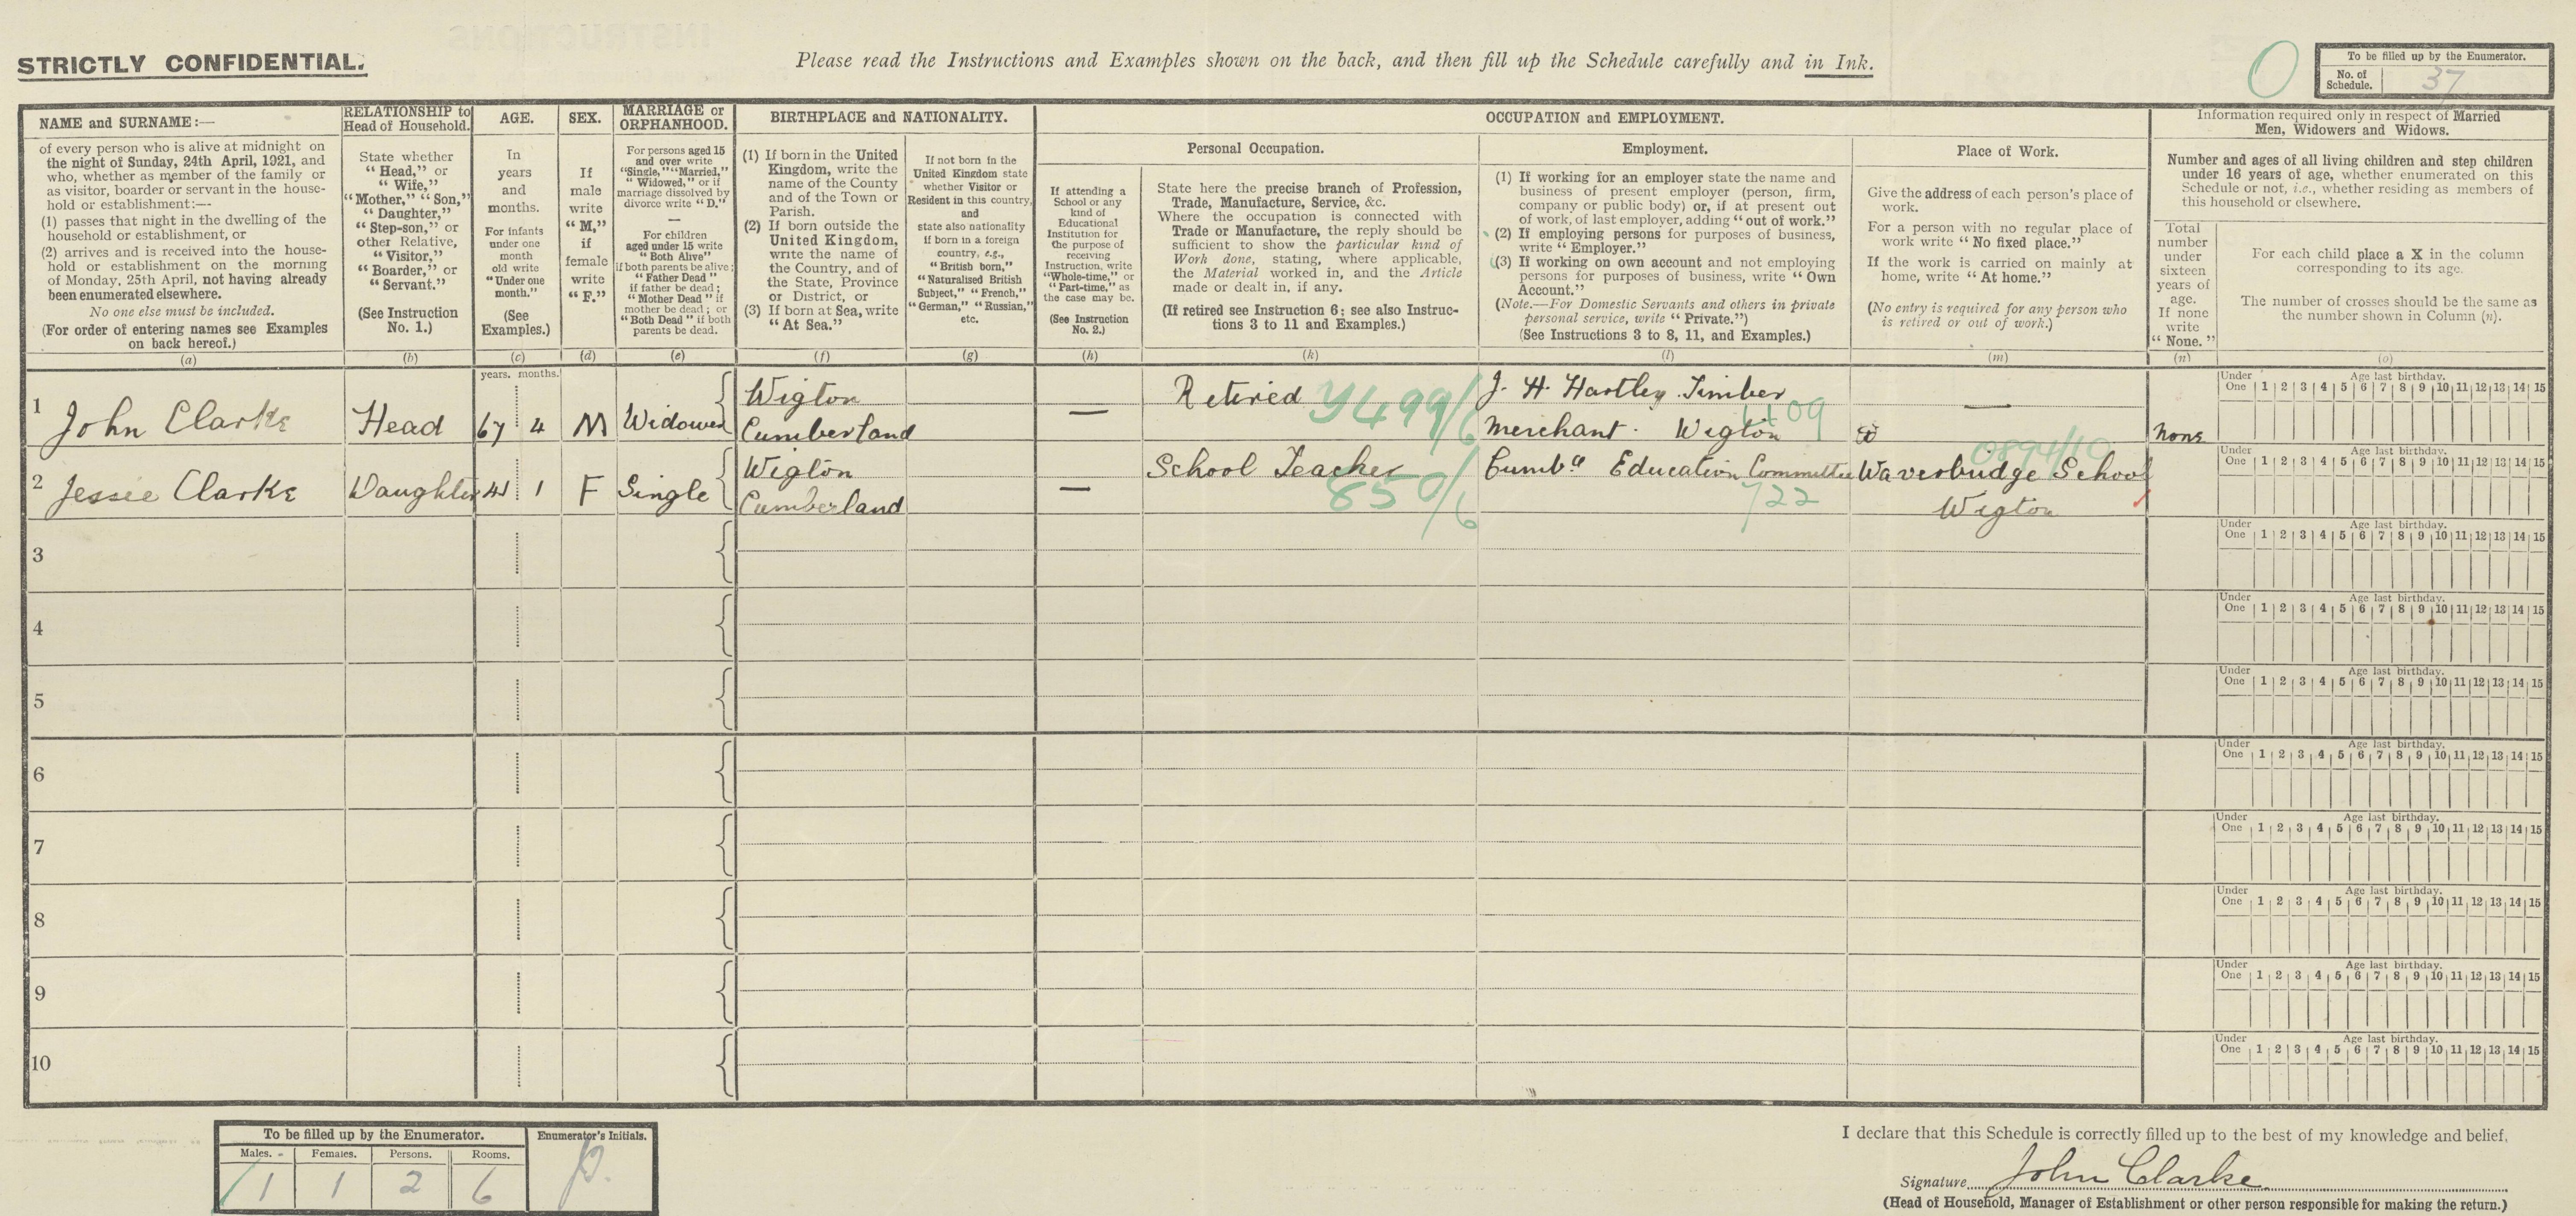 STRICTLY CONFIDENTIAL.
Please read the Instructions and Examples shown on the back, and then fill up the Schedule carefully and in Ink.
0
To be filled up by the Enumerator.
No. of
Schedule.
37
NAME and SURNAME:—
of every person who is alive at midnight on
the night of Sunday, 24th April, 1921, and
who, whether as member of the family or
as visitor, boarder or servant in the house-
hold or establishment:—
(1) passes that night in the dwelling of the
household or establishment, or
(2) arrives and is received into the house-
hold or establishment on the morning
of Monday, 25th April, not having already
been enumerated elsewhere.
No one else must be included.
(For order of entering names see Examples
on back hereof.)
(a)
RELATIONSHIP to
Head of Household.
State whether
"Head," or
"Wife,"
"Mother," "Son,"
"Daughter,"
"Step-son," or
other Relative,
"Visitor,"
"Boarder," or
"Servant."
(See Instruction
No. 1.)
(b)
AGE.
In
years
and
months.
For infants
under one
month
old write
"Under one
month."
(See
Examples.)
(c)
SEX.
If
male
write
"M,"
if
female
write
"F."
(d)
MARRIAGE or
ORPHANHOOD.
For persons aged 15
and over write
"Single," "Married,"
"Widowed," or if
marriage dissolved by
divorce write "D."
—
For children
aged under 15 write
"Both Alive"
if both parents be alive;
"Father Dead"
if father be dead;
"Mother Dead" if
mother be dead; or
"Both Dead" if both
parents be dead.
(e)
BIRTHPLACE and NATIONALITY.
(1) If born in the United
Kingdom, write the
name of the County
and of the Town or
Parish.
(2) If born outside the
United Kingdom,
write the name of
the Country, and of
the State, Province
or District, or
(3) If born at Sea, write
"At Sea."
(f)
If not born in the
United Kingdom state
whether Visitor or
Resident in this country,
and
state also nationality
if born in a foreign
country, e.g.,
"British born,"
"Naturalised British
Subject," "French,"
"German," "Russian,"
etc.
(g)
OCCUPATION and EMPLOYMENT.
Personal Occupation.
If attending a
School or any
kind of
Educational
Institution for
the purpose of
receiving
Instruction, write
"Whole-time," or
"Part-time," as
the case may be.
(See Instruction
No. 2.)
(h)
State here the precise branch of Profession,
Trade, Manufacture, Service, &c.
Where the occupation is connected with
Trade or Manufacture, the reply should be
sufficient to show the particular kind of
Work done, stating, where applicable,
the Material worked in, and the Article
made or dealt in, if any.
(If retired see Instruction 6; see also Instruc-
tions 3 to 11 and Examples.)
(k)
Employment.
(1) If working for an employer state the name and
business of present employer (person, firm,
company or public body) or, if at present out
of work, of last employer, adding "out of work."
(2) If employing persons for purposes of business,
write "Employer."
(3) If working on own account and not employing
persons for purposes of business, write "Own
Account."
(Note.—For Domestic Servants and others in private
personal service, write "Private.")
(See Instructions 3 to 8, 11, and Examples.)
(l)
Place of Work.
Give the address of each person's place of
work.
For a person with no regular place of
work write "No fixed place."
If the work is carried on mainly at
home, write "At home."
(No entry is required for any person who
is retired or out of work.)
(m)
Information required only in respect of Married
Men, Widowers and Widows.
Number and ages of all living children and step children
under 16 years of age, whether enumerated on this
Schedule or not, i.e., whether residing as members of
this household or elsewhere.
Total
number
under
sixteen
years of
age.
If none
write
"None."
(n)
For each child place a X in the column
corresponding to its age.
The number of crosses should be the same as
the number shown in Column (n).
(o)
years. months.
1 John Clarke Head 67 4 M Widower Wigton
Cumberland
— Retired Y499/6 J. H. Hartley Timber
Merchant. Wigton 409
— None
Under One 1 2 3 4 5 6 7 8 9 10 11 12 13 14 15
Age last birthday.
2 Jessie Clarke Daughter 41 1 F Single Wigton
Cumberland
— School Teacher 850/6 Cumbd Education Committee 722 Waverbridge School
Wigton
0894/10
Under One 1 2 3 4 5 6 7 8 9 10 11 12 13 14 15
Age last birthday.
3
Under One 1 2 3 4 5 6 7 8 9 10 11 12 13 14 15
Age last birthday.
4
Under One 1 2 3 4 5 6 7 8 9 10 11 12 13 14 15
Age last birthday.
5
Under One 1 2 3 4 5 6 7 8 9 10 11 12 13 14 15
Age last birthday.
6
Under One 1 2 3 4 5 6 7 8 9 10 11 12 13 14 15
Age last birthday.
7
Under One 1 2 3 4 5 6 7 8 9 10 11 12 13 14 15
Age last birthday.
8
Under One 1 2 3 4 5 6 7 8 9 10 11 12 13 14 15
Age last birthday.
9
Under One 1 2 3 4 5 6 7 8 9 10 11 12 13 14 15
Age last birthday.
10
Under One 1 2 3 4 5 6 7 8 9 10 11 12 13 14 15
Age last birthday.
To be filled up by the Enumerator.
Males. Females. Persons. Rooms.
1 1 2 6
Enumerator's Initials.
I declare that this Schedule is correctly filled up to the best of my knowledge and belief.
Signature John Clarke
(Head of Household, Manager of Establishment or other person responsible for making the return.)